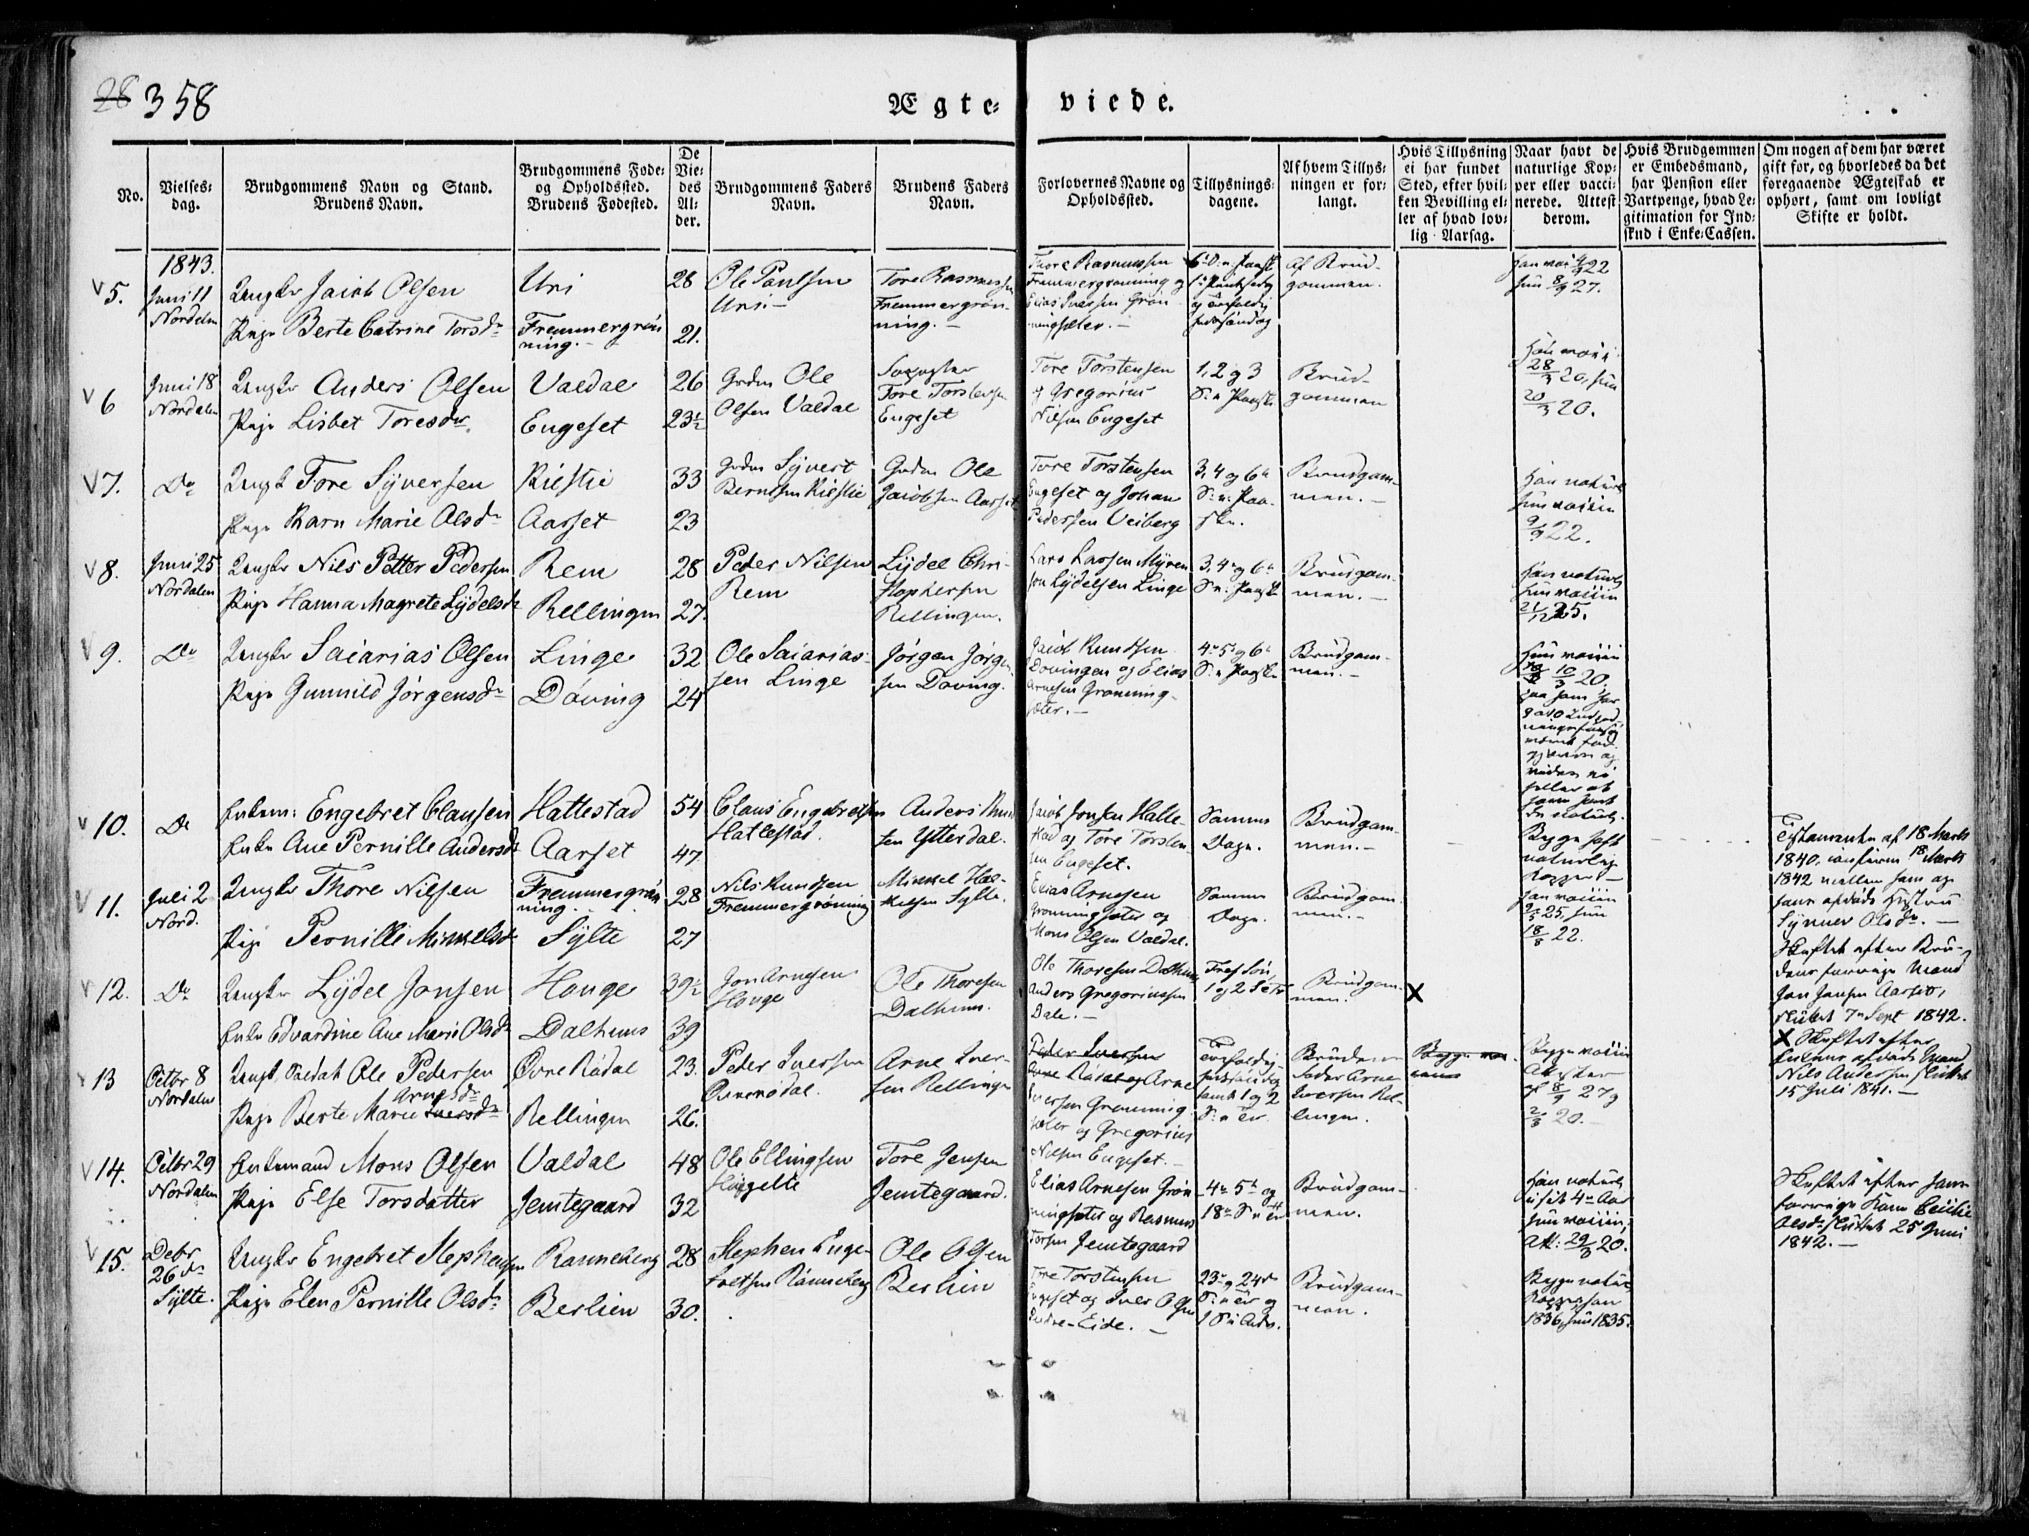 28 358
Ægte- viede.
No.
Vielses-
dag.
Brudgommens Navn og Stand.
Brudens Navn.
Brudgommens Føde-
og Opholdssted.
Brudens Fødested.
De
Vie-
des
Al-
der.
Brudgommens Faders
Navn.
Brudens Faders
Navn.
Forlovernes Navne og
Opholdssted.
Tillysnings-
dagene.
Af hvem Tillys-
ningen er for-
langt.
Hvis Tillysning
ei har fundet
Sted, efter hvil-
ken Bevilling el-
ler af hvad lov-
lig Aarsag.
Naar havt de
naturlige Kop-
per eller vacci-
nerede. Attest
derom.
Hvis Brudgommen
er Embedsmand,
har Pension eller
Vartpenge, hvad Le-
gitimation for Ind-
skud i Enke-Cassen.
Om nogen af dem har været
gift før, og hvorledes da det
foregaaende Ægteskab er
ophørt, samt om lovligt
Skifte er holdt.
1843.
5. Juni 11
Nordalen
Ungkr Jacob Olsen
Pige Berte Catrine Torsdr
Uri
Fremmergrøn-
ning.
28
21.
Ole Paulsen
Uri
Tore Rasmussen
Fremmergrøn-
ning.
Thore Rasmussen
Fremmergrønning og
Elias Iversen Grøn-
ningsæter.
Af Brud-
gommen.
22
27.
6 Juni 18
Nordalen
Ungkr Anders Olsen
Pige Lisbet Toresdr.
Valdal
Engeset
26
23½
Ole
Olsen Valdal
Tore Torstensen
Engeset
Tore Torstensen
og Gregorius
Nilsen Engeset
1, 2 og 3
S: e Paaske
Brud-
gommen
28/3 20, hun
20/3 20.
7. Do
Ungk Tore Syversen
Pige Karn Marie Olsdr
Kilstie
Aarset
33
23
Gdm Syvert
Berntsen Kilstie
Gdm Ole
Jacobsen Aarset
Tore Torstensen
Engeset og Johan
Pedersen Veiberg
3, 4 og 6te
S: e: Paa-
ske.
Brudgom-
men.
han naturl
hun vaccin
9/9 22.
8. Juni 25
Nordalen
Ungkr Nils Petter Pedersen
Pige Hanna Magrete Lydelsdr
Rem
Rellingen
28
27.
Peder Nilsen
Rem
Lydel Chri-
stophersen
Rellingen.
Lars Larsen Myren
Jon Lydelsen Linge
3, 4 og 6te
S: e: Paaske
Brudgom-
men.
han naturl
hun vaccin
21/12 25.
9. Do
Ungkr Saiarias Olsen
Pige Gunnild Jørgensdr
Linge
Døving
32
24
Ole Saiarias-
sen Linge
Jørgen Jørgen-
sen Døving.
Jacob Knudsen
Døvingen og Elias
Arnesen Grønning-
sæter.
4, 5 og 6te
S: e Paaske
Brudgom-
men.
hun vaccin
10/3 20.
10. Do
Enkem: Engebret Clausen
Enke Ane Pernille Andersdr
Hattestad
Aarset
54
47.
Claus Engebretsen
Hatlestad.
Anders Knud-
sen Ytterdal.
Jacob Jonsen Halle-
stad og Tore Torsten-
sen Engeset.
Samme
Dage.
Brudgom-
men.
Begge havt
naturlige
Kopper
Testamente af 18 Marts
1840, confirm 18 Marts
1842 mellem ham og
hans afdøde Hustru
Synnev Olsdr.
Skiftet efter Bru-
dens forrige Mand
Jon Jonsen Aarset,
sluttet 7de Sept 1842.
11. Juli 2
Nord.
Ungkr Thore Nilsen
Pige Pernille Mikkelsdr
Fremmergrøn-
ning.
Sylte
28
27
Nils Knudsen
Fremmergrønning
Mikkel Hal-
kelsen Sylte.
Elias Arnesen
Grønningsæter og
Mons Olsen Valdal.
Samme
Dage.
Brudgom-
men.
han vaccin
25, hun
18/8 22.
12. Do
Ungkr Lydel Jonsen
Enke Edvardine Ane Marie Olsdr
Houge
Dalhuus
39½
39
Jon Arnesen
Houge
Ole Thoresen
Dalhuus.
Ole Thoresen Dalhuus
Anders Gregoriussen
Dale.
1 og 2 S e Tr
Brudgom-
men.
X
X Skiftet efter
Enkens afdøde Mand
Nils Andersen sluttet
15 Juli 1841.
13 Octbr 8
Nordalen
Ungk, Soldat Ole Pedersen
Arnesdr
Pige Berte Marie Iversdr
Øvre Rødal
Rellingen
23.
26.
Peder Iversen
Øvrerødal
Arne Iver-
sen Rellingen
Peder Iversen
Øvre Rødal og Arne
Iversen Grønning-
sæter og Gregorius
Nilsen Engeset.
Trefoldig-
samt 1 og 2
S: e Tr.
Brudens
Fader Arne
Iversen Rel-
lingen.
Begge vaccin
Att:
27 og
20.
14. Octbr 29
Nordalen
Enkemand Mons Olsen
Pige Else Torsdatter
Valdal
Jemtegaard
48
32
Ole Ellingsen
Tore Jensen
Jemtegaard.
Elias Arnesen Grøn-
ningsæter og Rasmus
Torsen Jemtegaard
4de 5te og
18de S. e Tr
Brudgom-
men.
han naturl
hun vaccin,
Att: 29/8 20.
Skiftet efter hans
forrige Kone Cecilie
Olsdr sluttet 25 Juni
1842.
15. Decbr
26de
Sylte.
Ungkr Engebret Stephensen
Pige Elen Pernille Olsdr
Ranneberg
Berlien
28
30.
Stephen Enge-
bretsen Ranneberg
Ole Olsen
Berlien
Tore Torstensen
Engeset og Iver Olsen
Eide.
23de og 24de
S: e Tr og
1 S i Adv.
Brudgom-
men.
Begge naturl
Kopper, han
1836, hun 1835.